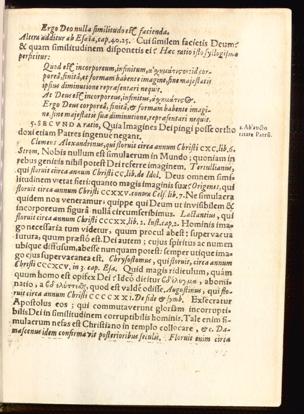 Ergo Deo nulla similitudo est facienda.
Altera additur ab Esaia, cap. 40. 25. Cui similem facietis Deum?
& quam similitudinem disponetis ei? Hac ratio isto syllogismo
perficitur:
Quod est incorporeum, infinitum,
poreo, finito, et formam habente imagine, sine majestatis
ipsius diminutione repræsentari nequit.
At Deus est incorporeus, infinitus, &c.
Ergo Deus corporeâ, finitâ, & formam habente imagine,
sine majestatis suæ diminutione, repræsentari nequit.
5. SECVNDA ratio, Quia Imagines Dei pingi posse orthodoxi
etiam Patres ingenuè negant.
2. Ab authoritate
Patrũ.
Clemens Alexandrinus, qui floruit anno Christi CXC, lib. 6.
Strom, Nobis nullum est simulacrum in Mundo; quoniam in
rebus genitis nihil potest Dei referre imaginem, Tertullianus,
qui floruit anno Christi CC, lib. de Idol. Deus omnem similitudinem
vetat fieri; quanto magis imaginis suæ; Origenes, qui
floruit circa annum Christi contra Cels. lib. 7. Ne simulacra
quidem nos veneramur; quippe qui Deum ut invisibilem &
incorporeum figurâ nullâ circumscribimus. Lactantius, qui
floruit circa annum Christi lib. 2. Inst. cap. 2. Hominis imago
necessaria tum videtur, quum procul abest; supervacua
futura, quum præstò est. Dei autem; cujus spiritus ac numen
ubique diffusum, abesse nunquam potest: semper utique imago
ejus supervacanea est. Chrysostomus, qui floruit, circa annum
Christi in 3. cap. Esa. Quid magis ridiculum, quàm
quum homo est opifex Dei? Ideò dicitur abominatio,
à quod est valdè odisse, Augustinus, qui floruit
circa annum Christi De fide & symb. Exsecratur
Apostolus eos; qui commutaverunt gloriam incorruptibilis
Dei in similitudinem corruptibilis hominis. Tale enim simulacrum
nefas est Christiano in templo collocare, &c. Damascenus
idem confirmavit posterioribus seculis, Floruit enim circa